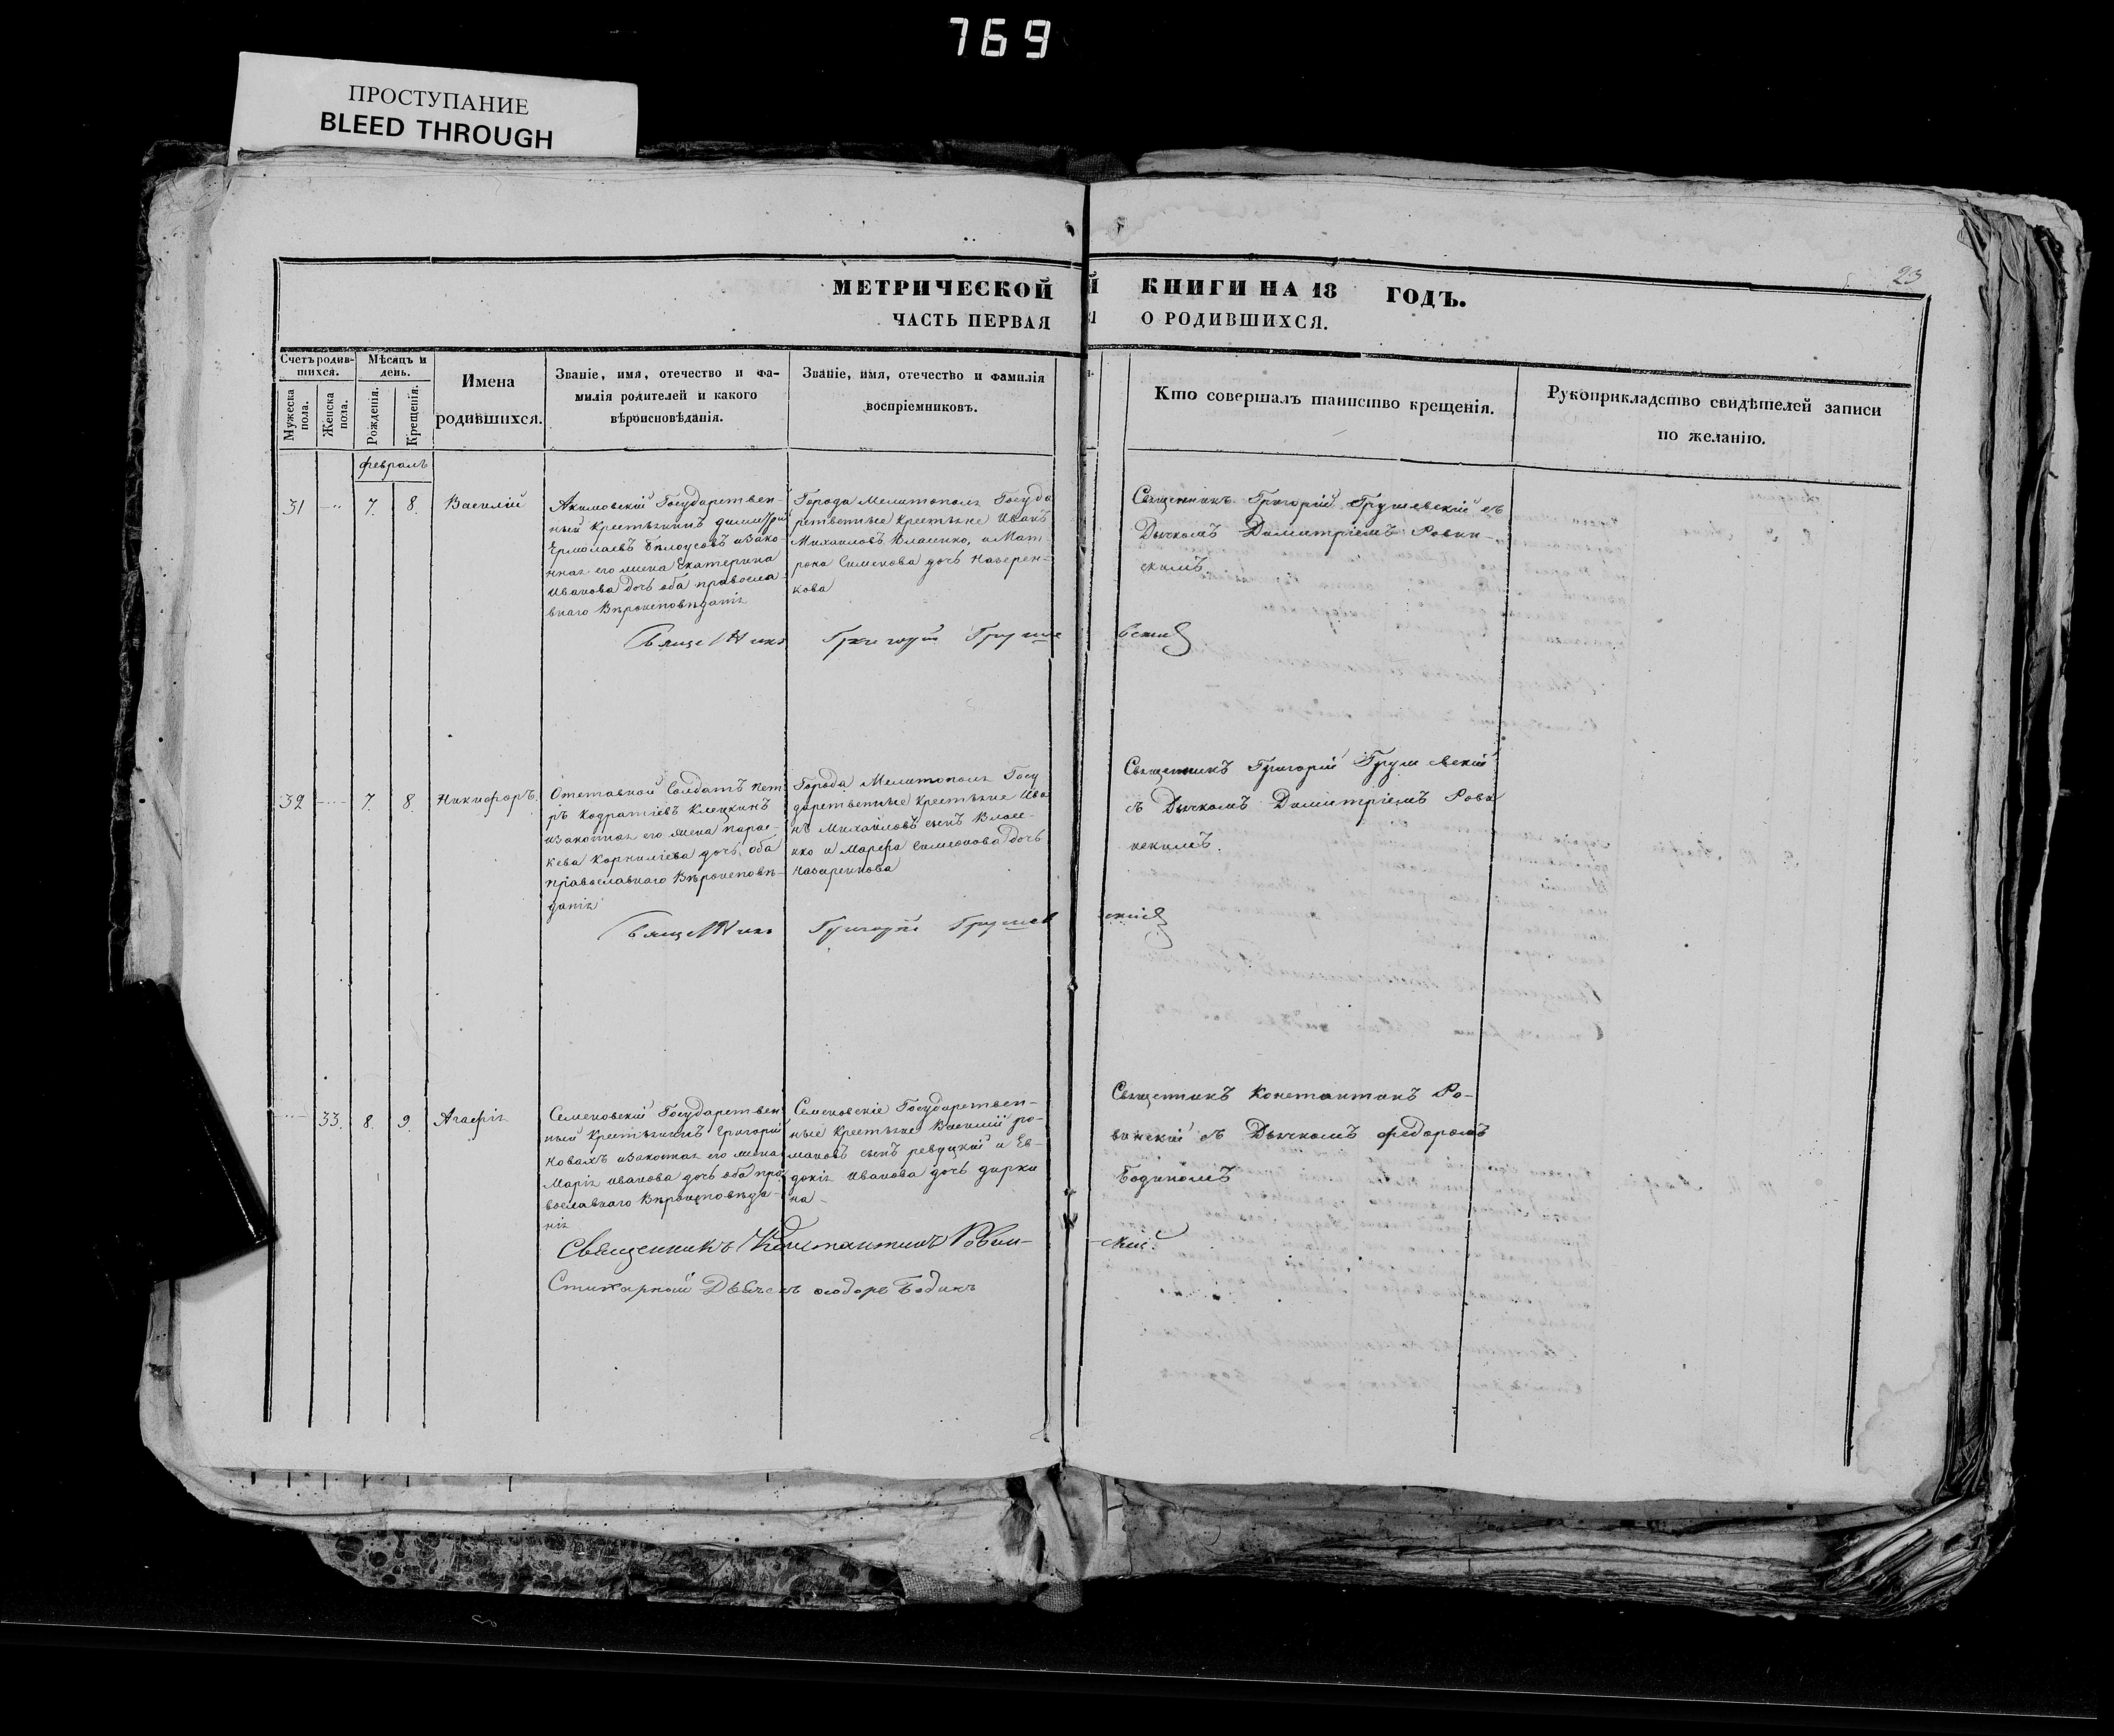 769
ПРОСТУПАНИЕ
BLEED THROUGH
23
МЕТРИЧЕСКОЙ КНИГИ НА 18 ГОДЪ.
ЧАСТЬ ПЕРВАЯ О РОДИВШИХСЯ.
Счетъ родив-
шихся.
Мужеска пола.
Женска пола.
Мѣсяцъ и
день.
Рожденія.
Крещенія.
Имена
родившихся.
Званіе, имя, отечество и фа-
милія родителей и какого
вѣроисповѣданія.
Званіе, имя, отечество и фамилія
воспріемниковъ.
Кто совершалъ таинство крещенія.
Рукоприкладство свидѣтелей записи
по желанію.
февраль
31 7. 8. Василій
Акимовскій Государствен-
ный крестьянинъ димитрій
Ермолаевъ Бѣлоусовъ изако-
нная его жена Екатерина
Иванова дочь оба правосла-
внаго Вѣроисповѣданія
Города Мелитополя Госуда
рственные крестьяне Иванъ
Михаиловъ Власенко, и Мат
рона Симеонова дочь Назарен-
кова
Священникъ Григорій Грушевскій съ
Дьячкомъ Димитріемъ Ровин-
скимъ
Священникъ Григорій Грушевскій
32 7. 8 Никифоръ.
Отставной Солдатъ Пет
ръ Кодратіевъ Клецкинъ
изаконная его жена парас-
кева Корниліева дочь, оба
православнаго Вѣроисповѣ-
данія
Города Мелитополя Госу
дарственные крестьяне Ива
нъ Михаиловъ сынъ Власе-
нко и Марфа Симеонова дочь
Назаренкова
Священникъ Григорій Грушевскій
съ Дьячкомъ Димитріемъ Рови
нскимъ.
Священникъ Григорій Грушевскій
33. 8. 9. Агафія
Семеновскій Государствен
ный крестьянинъ Григорій
Новахъ изаконная его жена
Марія иванова дочь оба пра
вославнаго Вѣроисповѣда-
нія
Семеновскіе Государствен-
ные крестьяне Василій ро-
мановъ сынъ ревуцкій и Ев-
докія Иванова дочь дирки
на
Священникъ Константинъ Ро-
винскій съ Дьячкомъ федоромъ
Бодинымъ
Священникъ Константинъ Ровин-
-скій.
Стихарный Дьячекъ Бодинъ